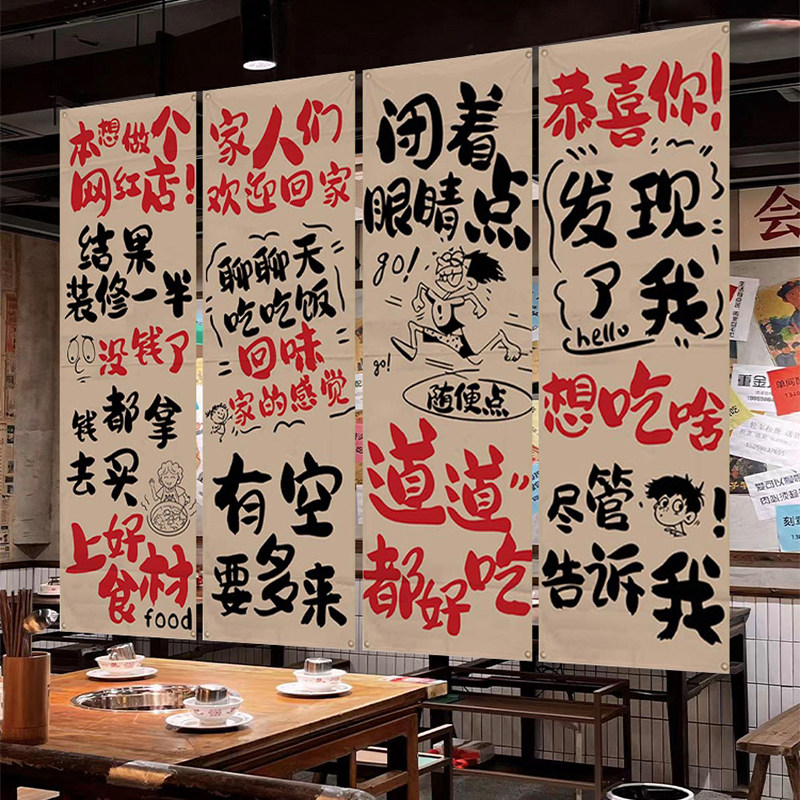 本想做个
网红店!
结果
装修一半
没钱了
钱都拿
去买
上好
食材
food
家人们
欢迎回家
聊聊天
吃吃饭
回味
家的感觉
有空
要多来
闭着
眼睛点
go!
go!
随便点
道道"
都好吃
恭喜你!
发现
了我
hello
想吃啥
尽管!
告诉我
会
重金
单间